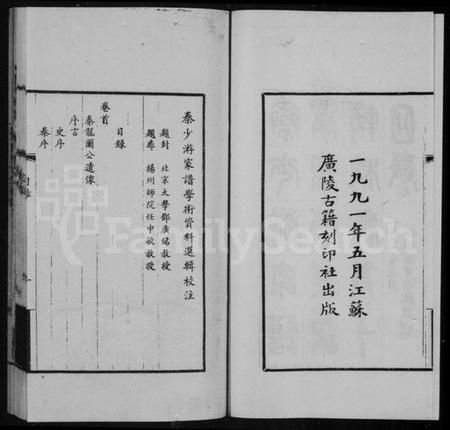 一九九一年五月江蘇
廣陵古籍刻印社出版
秦少游家譜學術資料選輯校注
題封 北京大學鄧廣銘教授
題扉 揚州師院任中敏教授
目錄
卷首
秦龍圖公遺像
序言
史序
秦序
FamilySearch